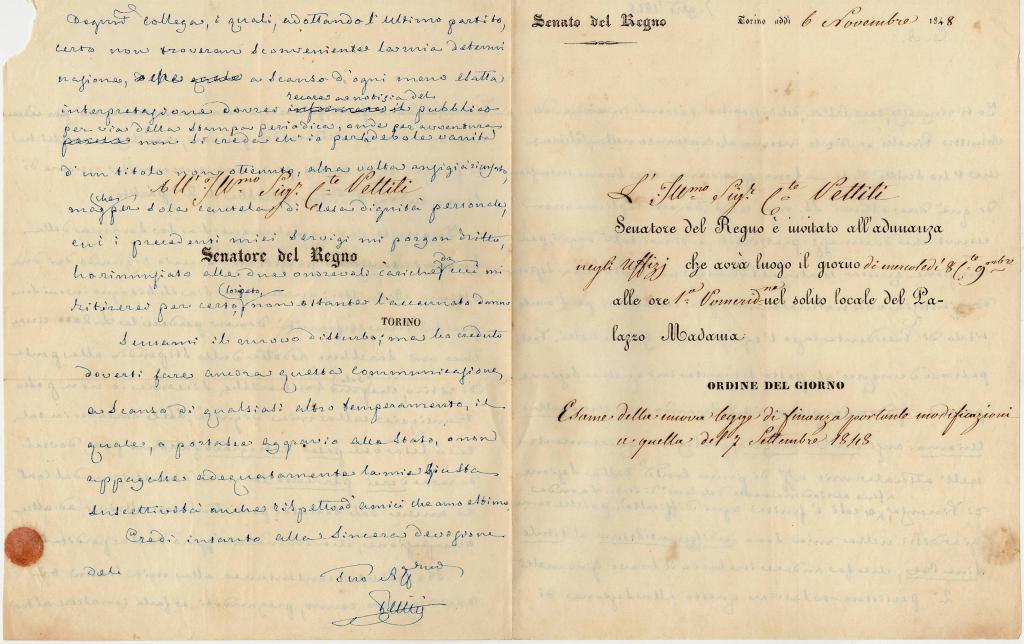 Degnmi collega, i quali, adottando l'ultimo partito,
certo non troveran sconveniente la mia determi
nazione, a scanso d'ogni meno esatta
recare a notizia del
interpretazione dovrei informare il pubblico
per via della stampa periodica, onde per avventura
non si creda ch'io per debole vanità
d'un titolo non ottenuto, altra volta
All' Illmo Sigr Cte Pettiti
ma per sola cautela di lesa dignità personale,
cui i precedenti miei servigi mi porgon dritto,
Senatore del Regno
ho rinunziato alle due onorevoli cariche da cui mi
ritirerei per certo, non ostante l'accennato danno
TORINO
Scusami il nuovo disturbo; ma ho creduto
doverti fare ancora questa communicazione,
a scanso di qualsiasi altro temperamento, il
quale, o portasse aggravio allo Stato, o non
appagasse adequatamente la mia giusta
suscettività anche rispetto ad amici che amo e stimo.
Credi intanto alla sincera devozione
del
Tuo
Pettiti
Senato del Regno
Torino addì 6 Novembre 1848
L' Illmo Sigr Cte Pettiti
Senatore del Regno è invitato all'adunanza
negli Uffizj che avrà luogo il giorno di mercoledì 8 Cte 9mbre
alle ore 1a Pomeridne nel solito locale del Pa-
lazzo Madama.
ORDINE DEL GIORNO
Esame della nuova legge di finanza portante modificazioni
a quella del 7 Settembre 1848